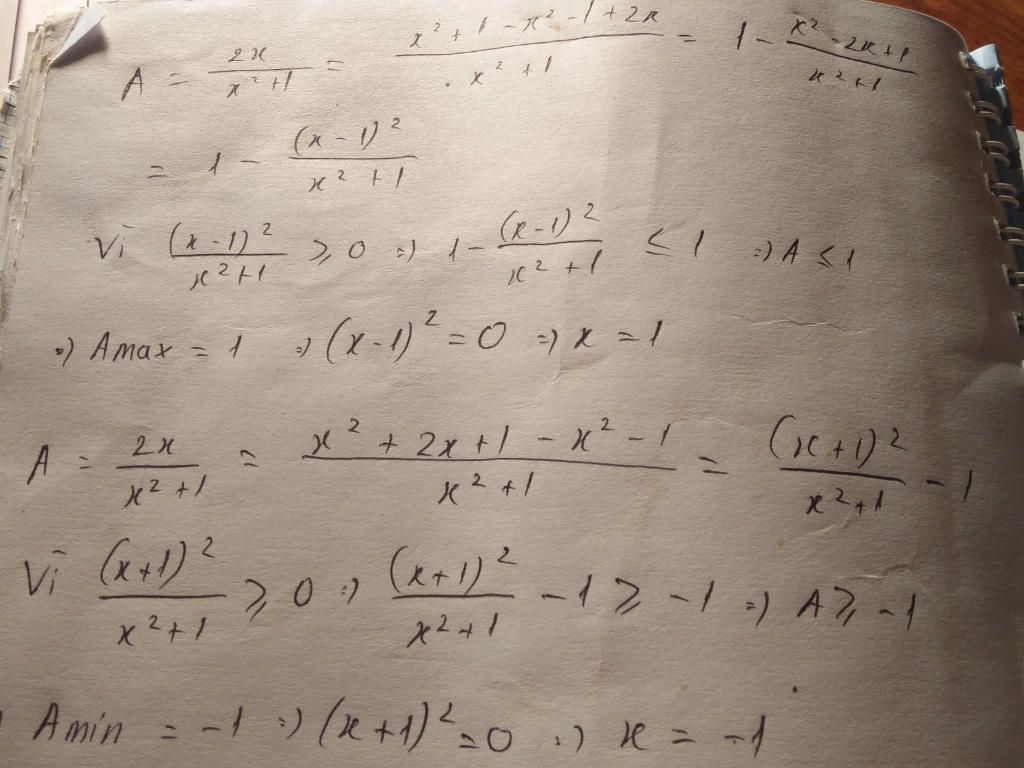 A = 2x/(x²+1) = (x²+1-x²-1+2x)/(x²+1) = 1 - (x²-2x+1)/(x²+1)
= 1 - (x-1)²/(x²+1)
Vì (x-1)²/(x²+1) ⩾ 0 => 1 - (x-1)²/(x²+1) ≤ 1 => A ≤ 1
=> Amax = 1 => (x-1)² = 0 => x = 1
A = 2x/(x²+1) = (x²+2x+1-x²-1)/(x²+1) = (x+1)²/(x²+1) - 1
Vì (x+1)²/(x²+1) ⩾ 0 => (x+1)²/(x²+1) - 1 ⩾ -1 => A ⩾ -1
Amin = -1 => (x+1)² = 0 => x = -1